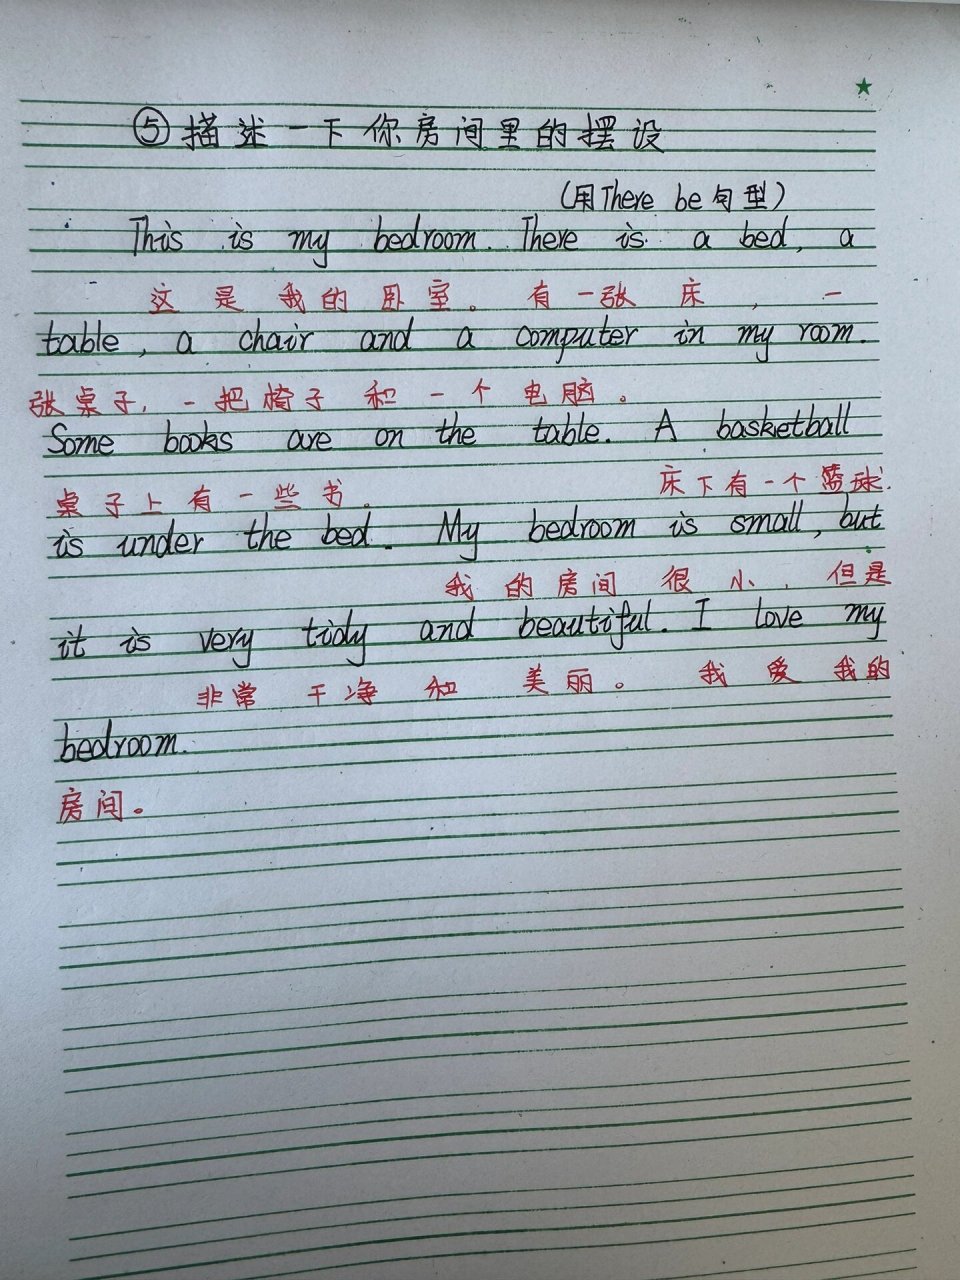 ⑤描述一下你房间里的摆设
(用There be句型)
This is my bedroom. There is a bed, a
这是我的卧室。有一张床,一
table, a chair and a computer in my room.
张桌子,一把椅子和一个电脑。
Some books are on the table. A basketball
桌子上有一些书。 床下有一个篮球.
is under the bed. My bedroom is small, but
我的房间很小,但是
it is very tidy and beautiful. I love my
非常干净和美丽。我爱我的
bedroom.
房间。